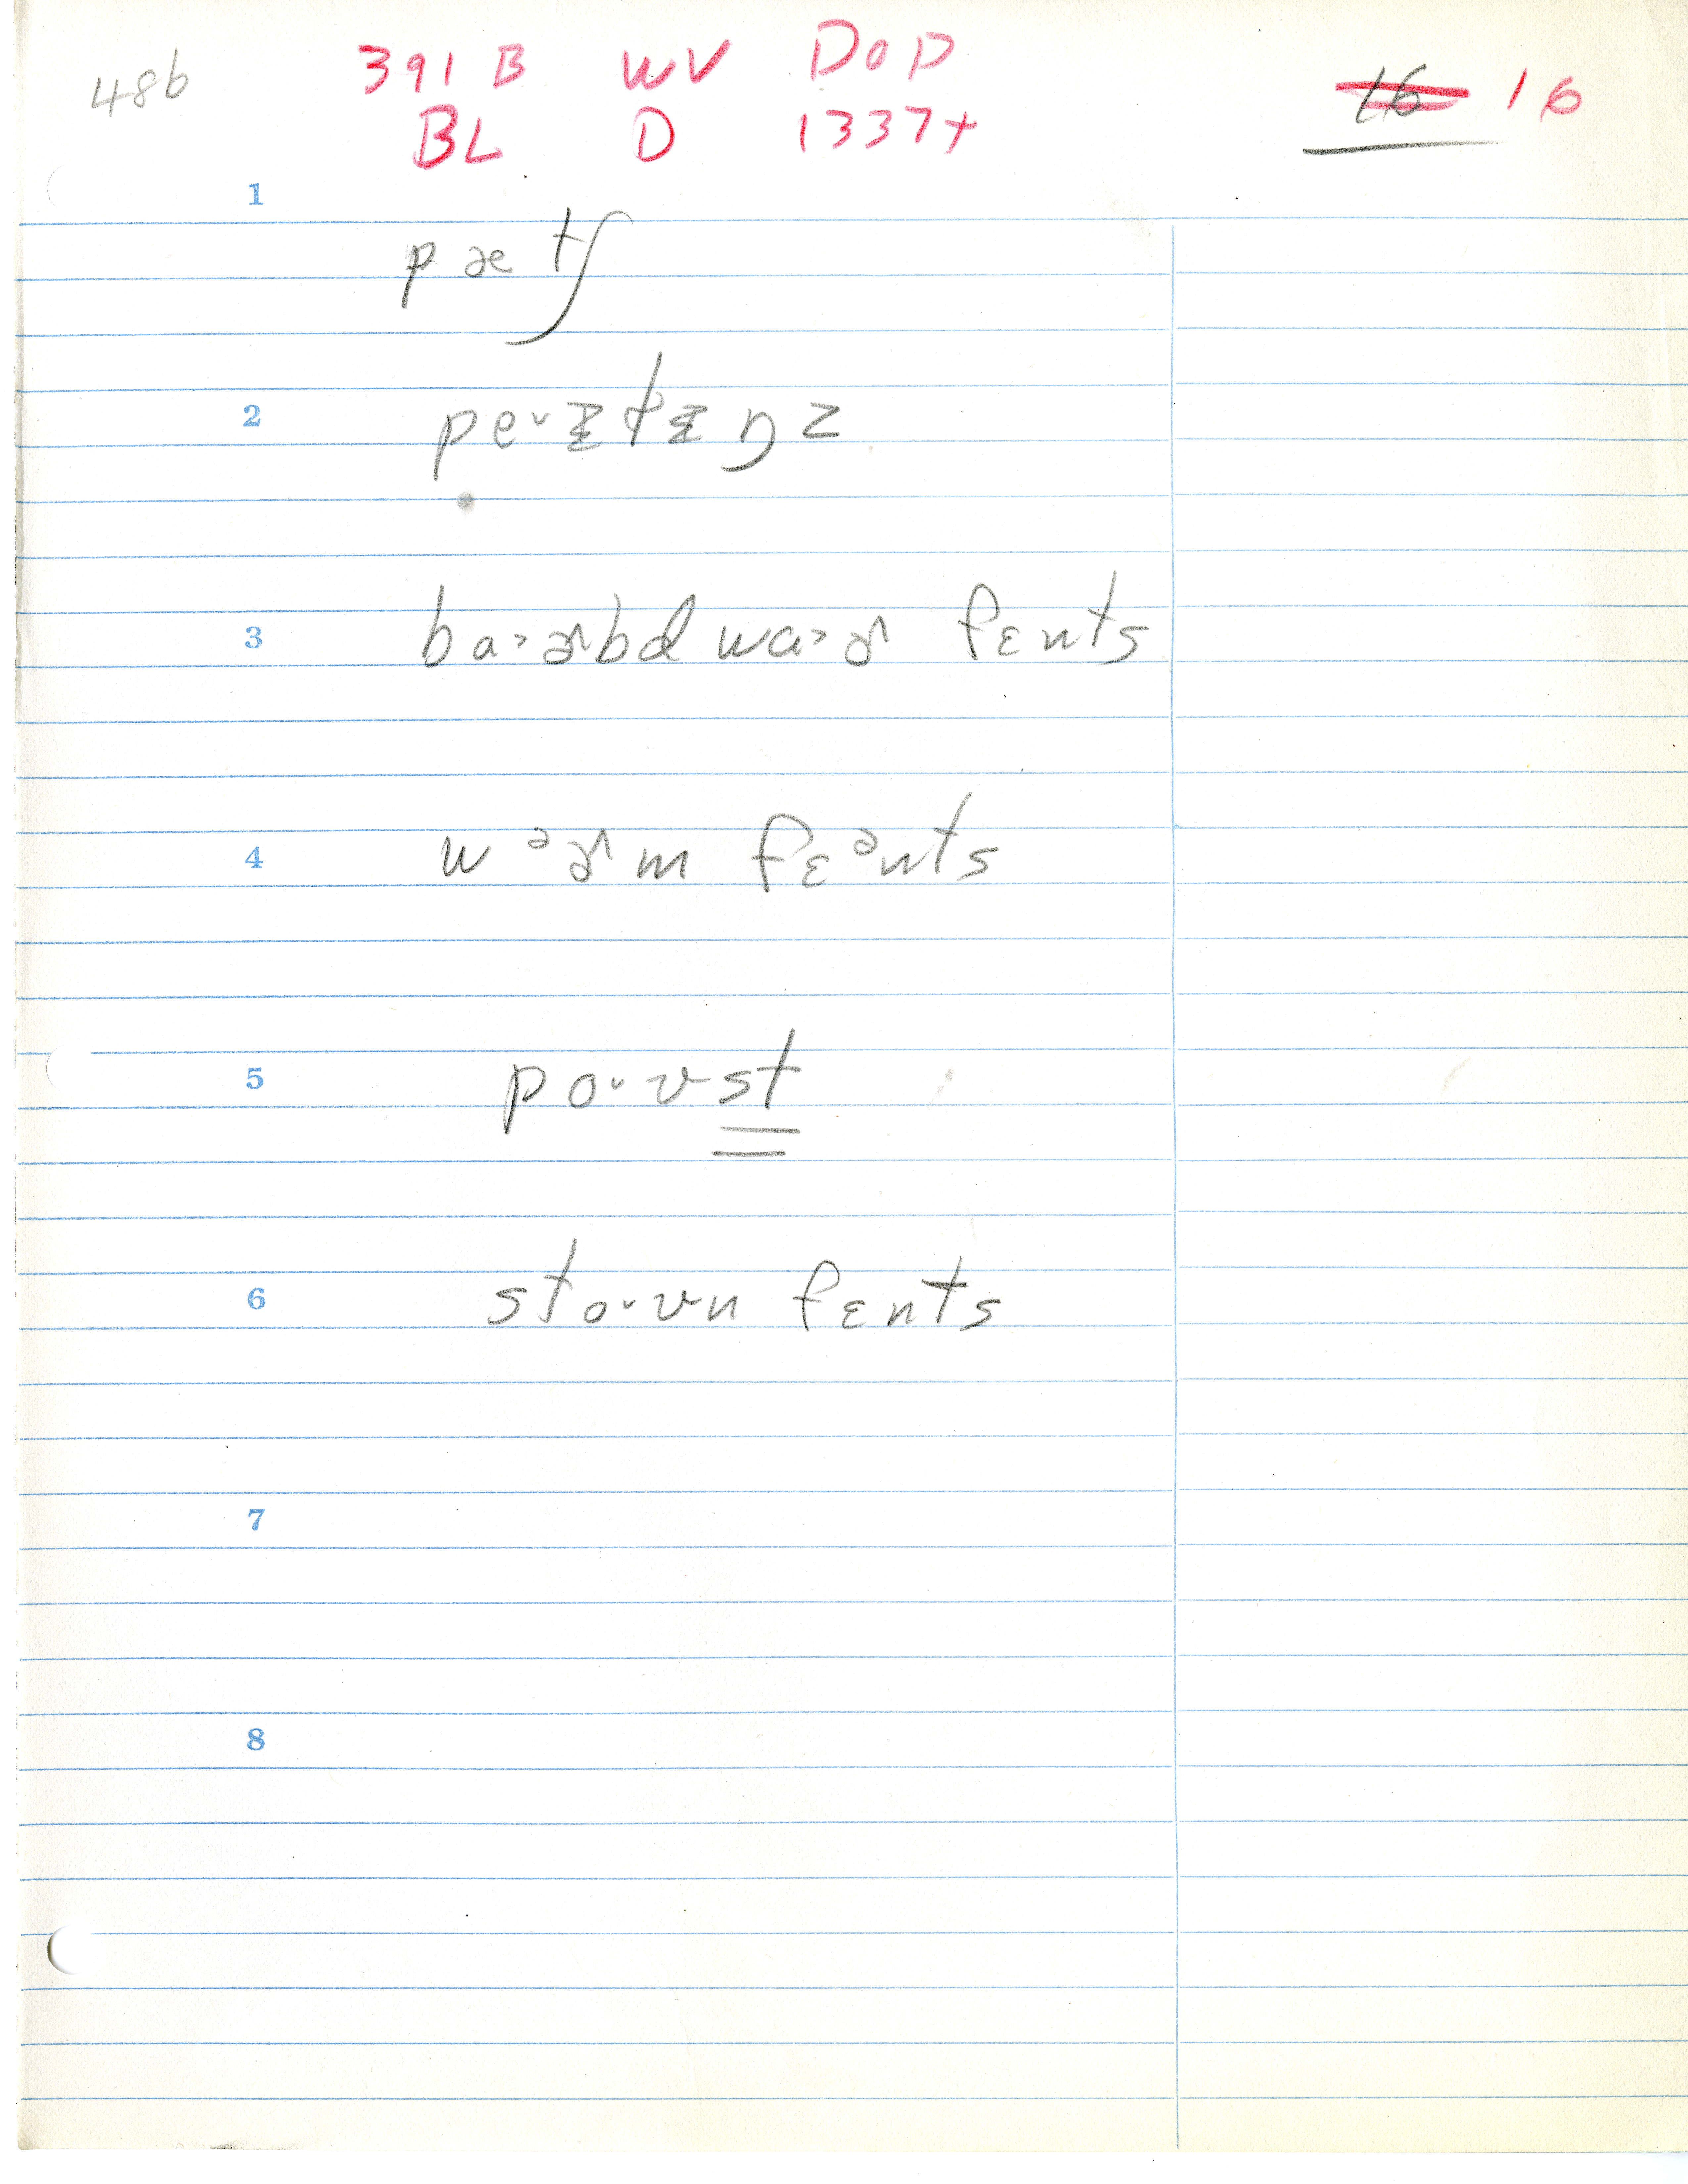 48b 391 B WV DOP 16 16
BL D 1337+
1
pætʃ
2 pe˅ɨtɨŋz
3 ba˃ɚbd wa˃ɚ fɛnts
4 wᵊɚm fɛᵊnts
5 po˅ʊst
6 sto˅ʊn fɛnts
7
8